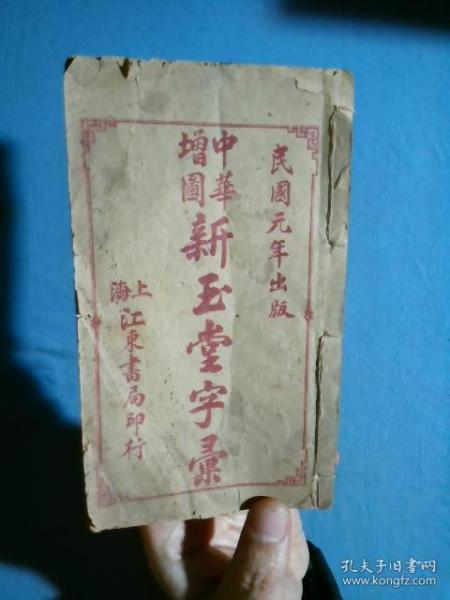 民國元年出版
中華
增圖
新玉堂字彙
上海
江東書局印行
孔夫子旧书网
www.kongfz.com